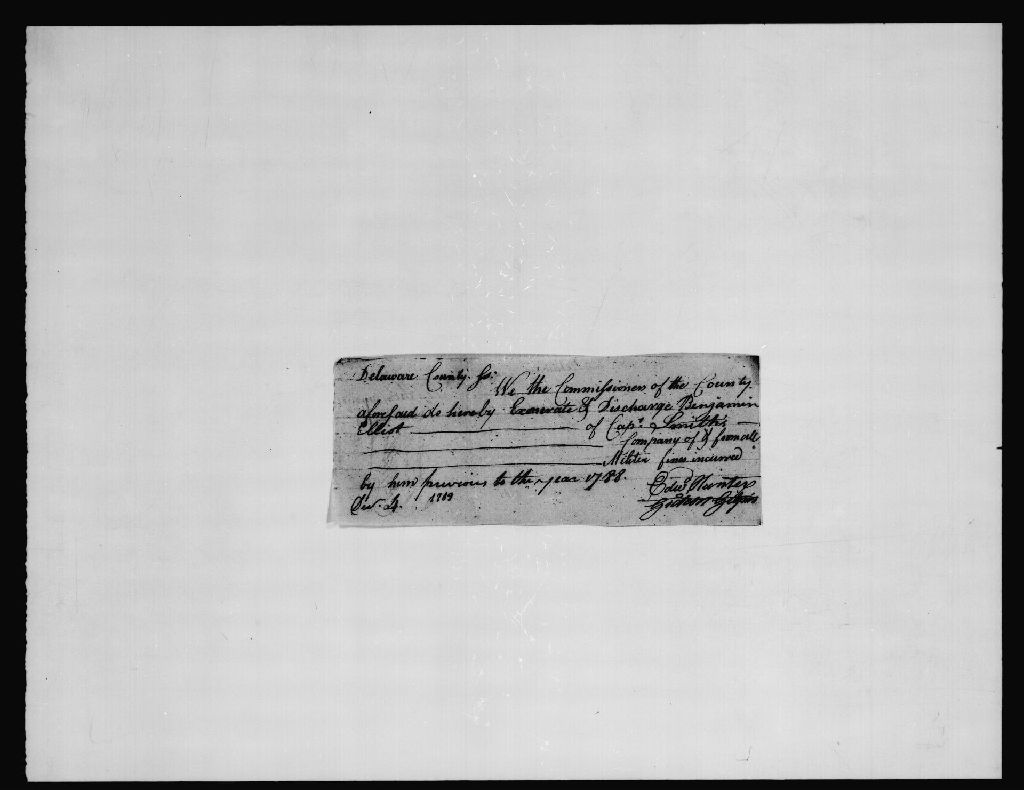 Delaware County ss.
We the Commissioners of the County
aforesaid do hereby Exonerate & Discharge Benjamin
Elliot of Capt. Smith's
Company of & from all
Militia fines incurred
by him previous to the year 1788.
Decr. 4. 1789
Edwd. Hunter
Gideon Gilpin